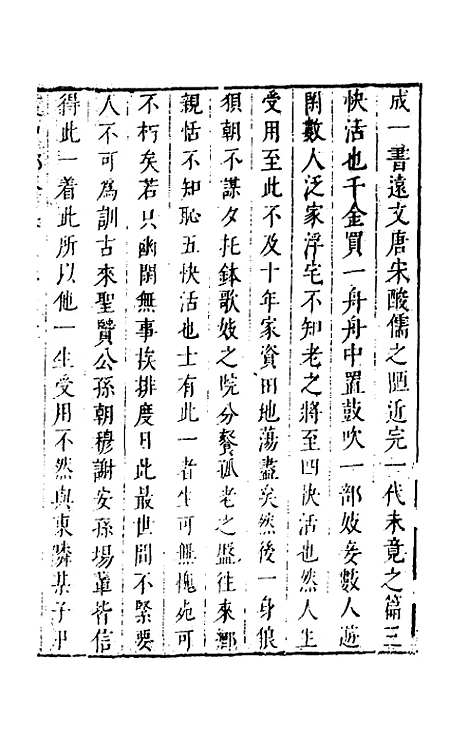 成一書遠文唐宋酸儒之陋近完一代未竟之篇三
快活也千金買一舟舟中置鼓吹一部妓妾數人遊
閑數人泛家浮宅不知老之將至四快活也然人生
受用至此不及十年家資田地蕩盡矣然後一身狼
狽朝不謀夕托鉢歌妓之院分餐孤老之盤往來鄉
親恬不知恥五快活也士有此一者生可無愧死可
不朽矣若只幽閑無事挨排度日此最世間不緊要
人不可為訓古來聖賢公孫朝穆謝安孫瑒輩皆信
得此一着此所以他一生受用不然與東隣某子甲